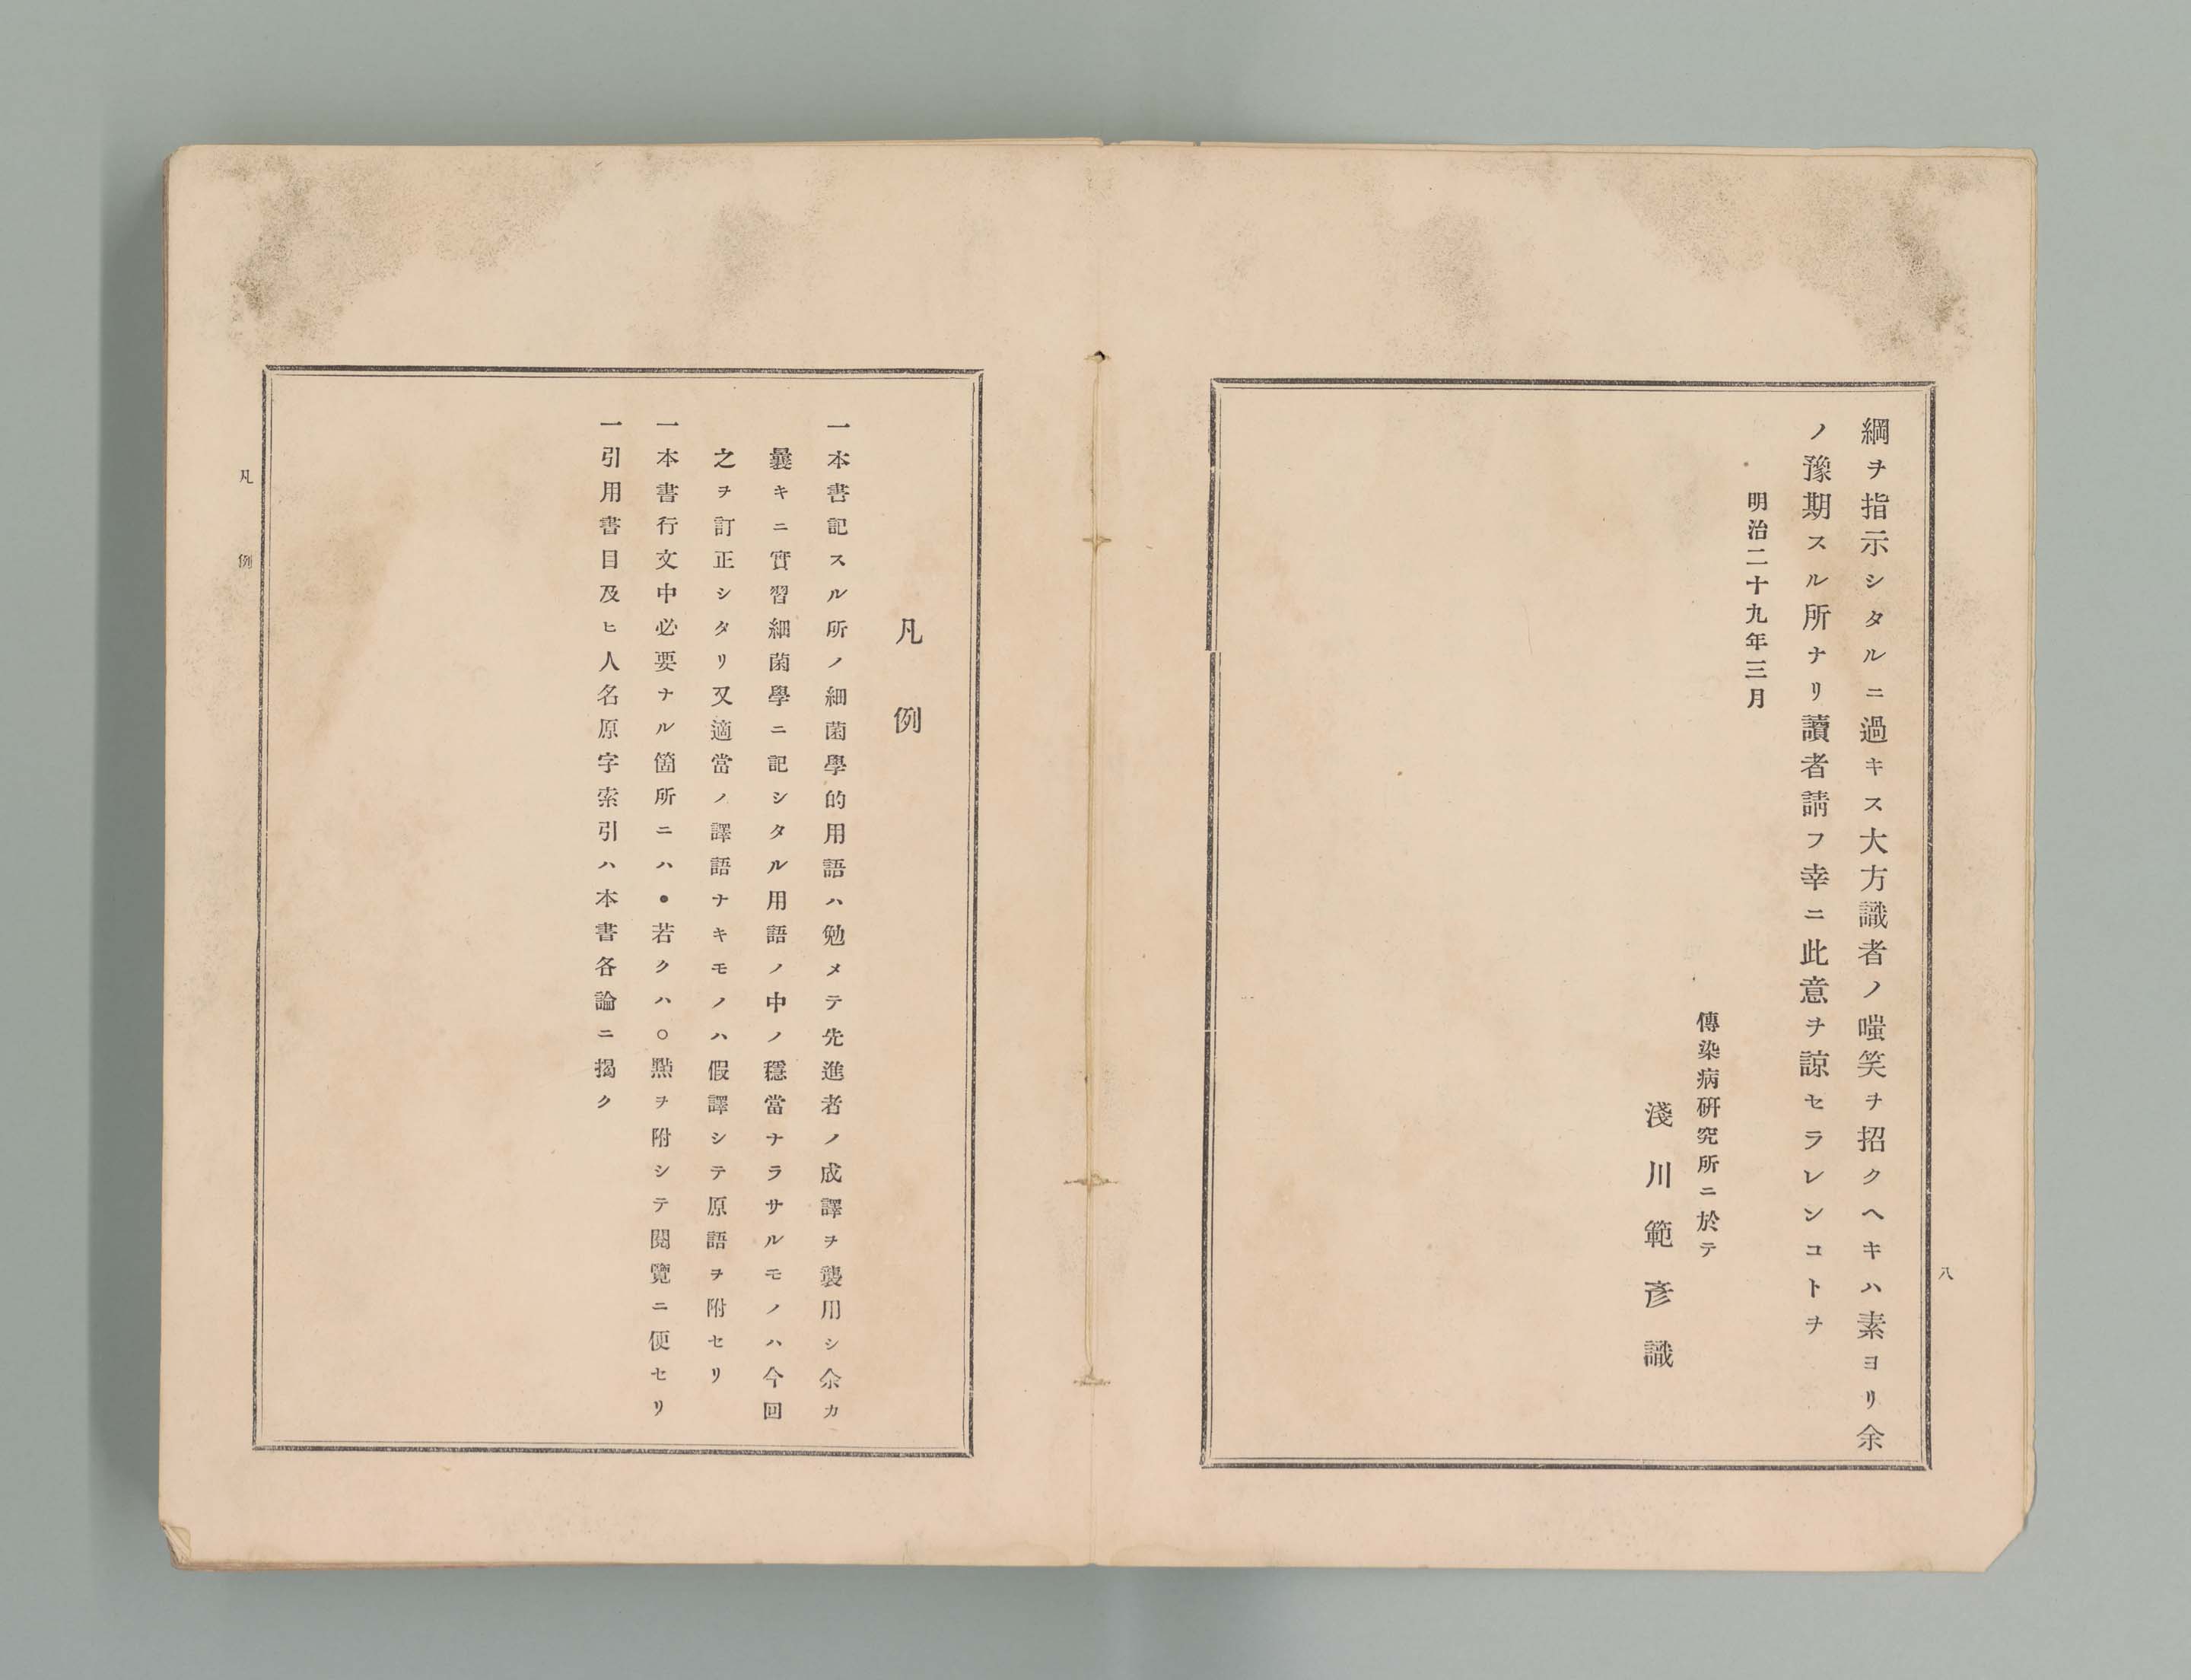 八
綱ヲ指示シタルニ過キス大方識者ノ嗤笑ヲ招クヘキハ素ヨリ余
ノ豫期スル所ナリ讀者請フ幸ニ此意ヲ諒セラレンコトヲ
明治二十九年三月
傳染病硏究所ニ於テ
淺川範彥識
凡例
一本書記スル所ノ細菌學的用語ハ勉メテ先進者ノ成譯ヲ襲用シ余カ
曩キニ實習細菌學ニ記シタル用語ノ中ノ穩當ナラサルモノハ今回
之ヲ訂正シタリ又適當ノ譯語ナキモノハ假譯シテ原語ヲ附セリ
一本書行文中必要ナル箇所ニハ●若クハ○㸃ヲ附シテ閱覽ニ便セリ
一引用書目及ヒ人名原字索引ハ本書各論ニ揭ク
凡例